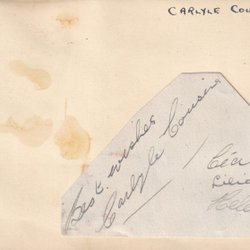 CARLYLE COU
Best wishes
Carlyle Cousins
Lilia